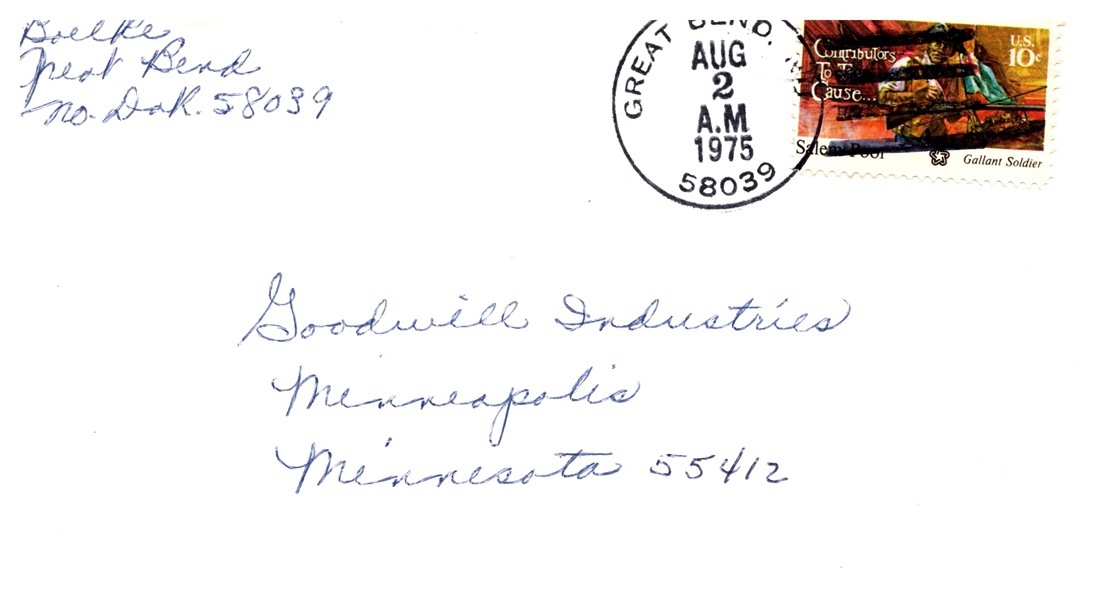 Boelke
Great Bend
No. Dak. 58039
GREAT BEND,
AUG
2
A.M
1975
58039
Contributors
To The
Cause...
U.S.
10c
Salem Poor
Gallant Soldier
Goodwill Industries
Minneapolis
Minnesota 55412